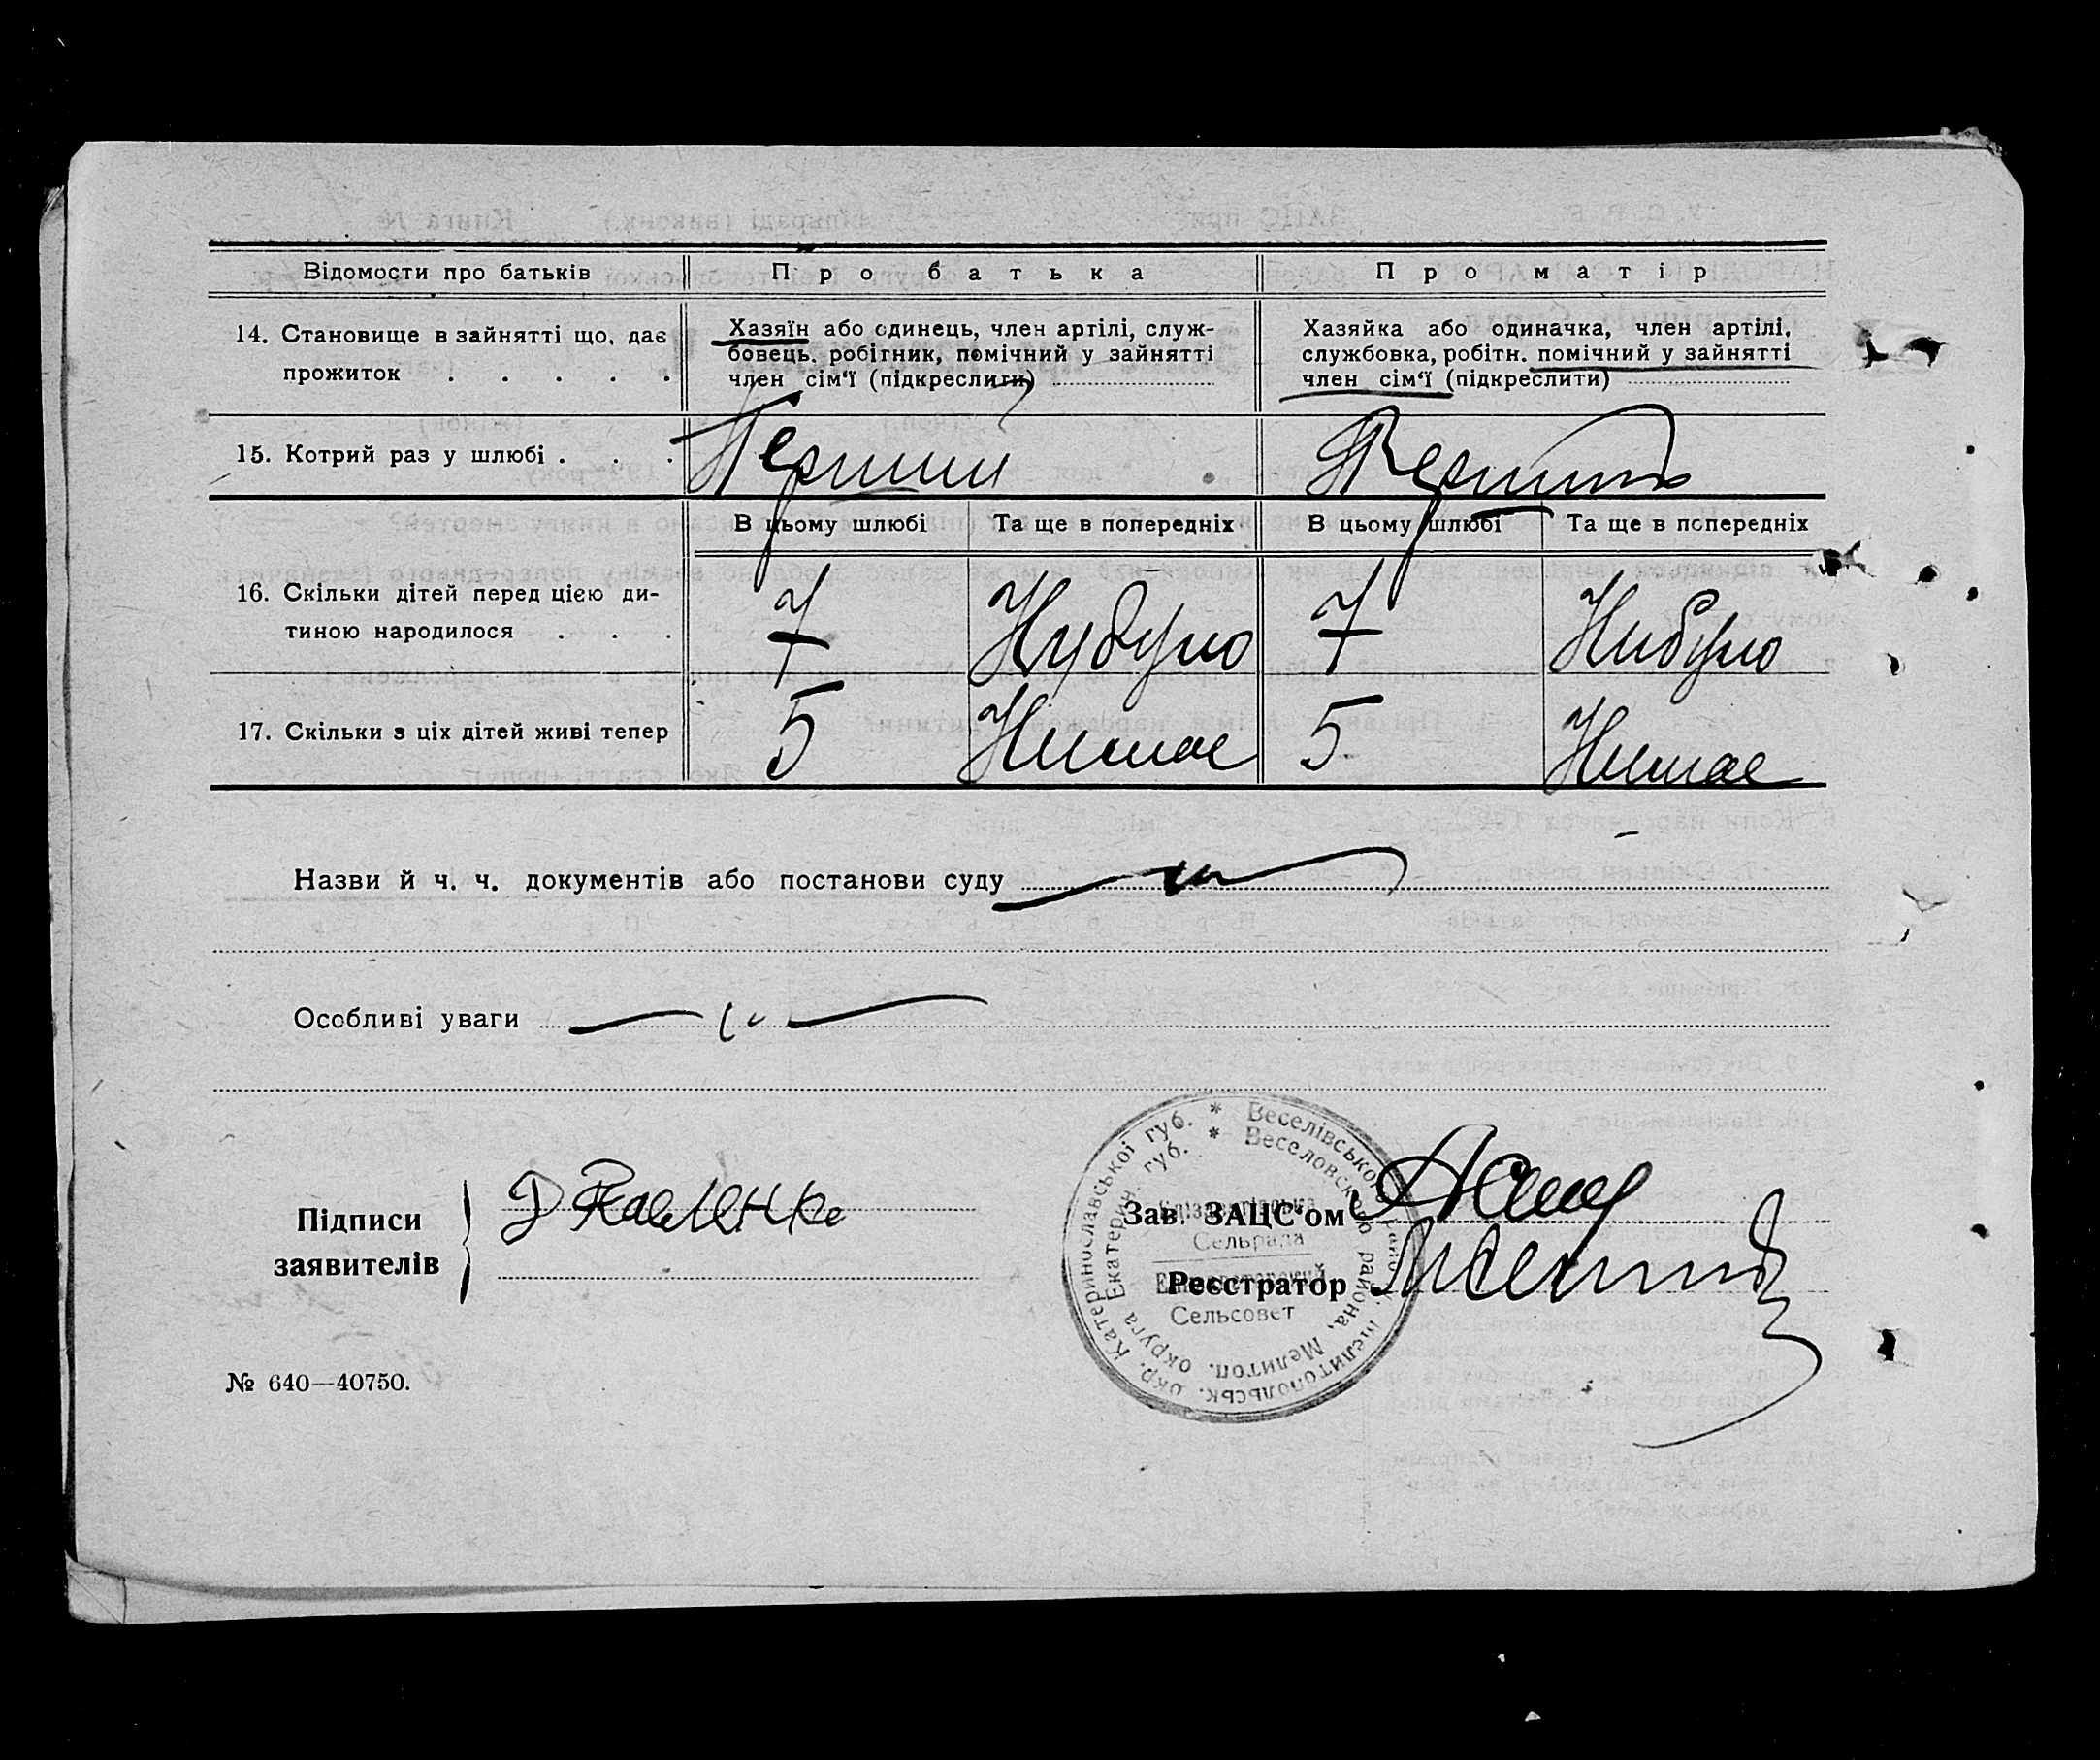 Відомости про батьків Про батька Про матір
14. Становище в зайнятті що, дає прожиток . . . . .
Хазяїн або одинець, член артілі, служ-
бовець, робітник, помічний у зайнятті
член сім'ї (підкреслити)
Хазяйка або одиначка, член артілі,
службовка, робітн. помічний у зайнятті
член сім'ї (підкреслити)
15. Котрий раз у шлюбі . . .
В цьому шлюбі Та ще в попередніх В цьому шлюбі Та ще в попередніх
16. Скільки дітей перед цією ди-
тиною народилося . . .
7 Нубуло 7 Нибуло
17. Скільки з ціх дітей живі тепер 5 Нимае 5 Нимае
Назви й ч. ч. документів або постанови суду
Особливі уваги
Підписи
заявителів
Зав. ЗАЦС'ом
Реєстратор
* Веселівського району, Мелитопольськ. окр. Катеринославської губ.
* Веселовского района, Мелитоп. округа Екатерин. губ.
Сельрада
Сельсовет
№ 640—40750.